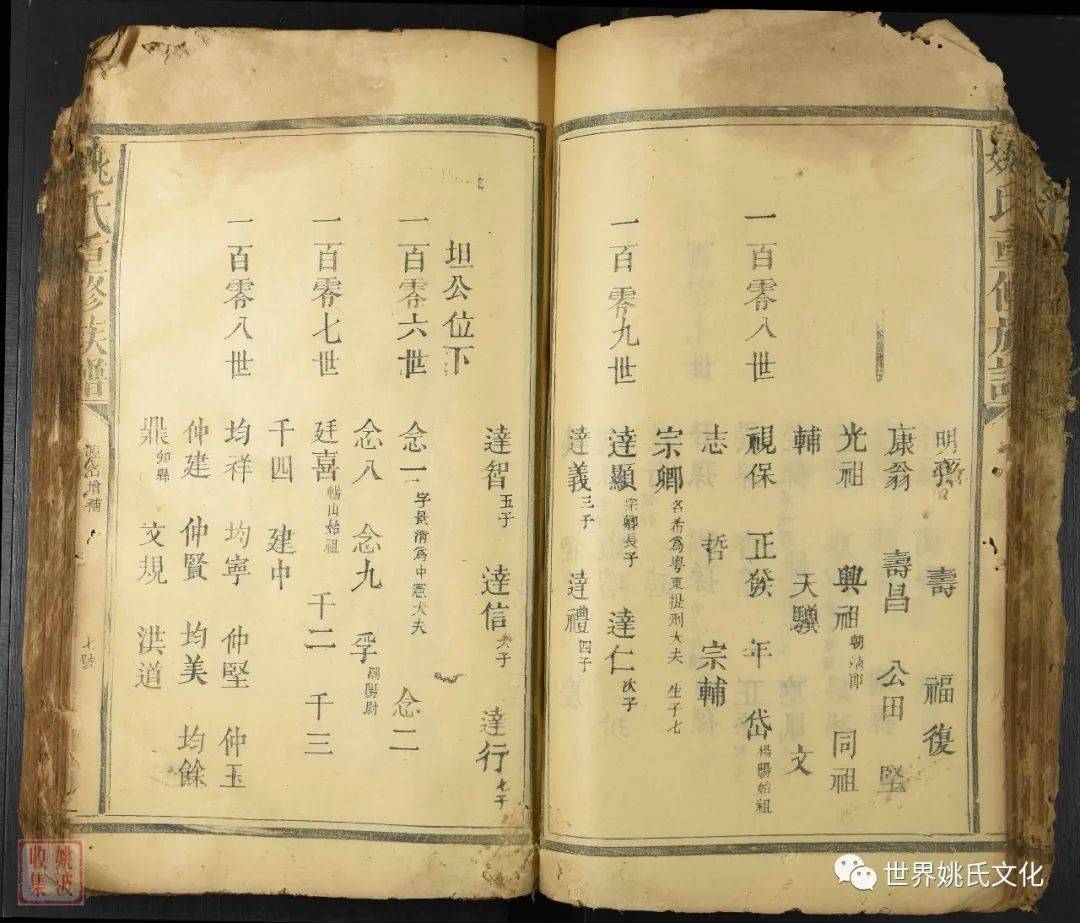 姚氏重修族譜
明 壽 福復
康翁 壽昌 公田 堅
光祖 興祖 朝納郎 同祖
輔 天驥 文
一百零八世 視保 正發 年 岱 楊陽始祖
志 哲 宗輔
宗卿 名希爲粵東提刑大夫 生子七
一百零九世 達顯 宗卿長子 達仁 次子
達義 三子 達禮 四子
達智 五子 達信 六子 達行 七子
坦公位下
一百零六世 念一 字景清爲中憲大夫 念二
念八 念九 孚 陽尉
一百零七世 廷喜 暘山始祖 千二 千三
千四 建中
一百零八世 均祥 均寧 仲堅 仲玉
仲建 仲賢 均美 均餘
鼎 知縣 文規 洪道
姚氏重修族譜
增補
七號
姚波收集
世界姚氏文化